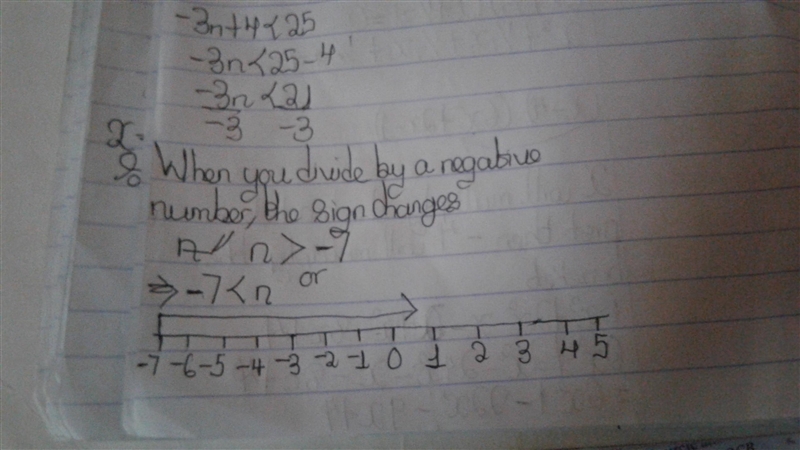 -3n+4<25
-3n<25-4
-3n <21
-3 -3
When you divide by a negative
number, the sign changes
n > -7
or
⇒ -7<n
-7 -6 -5 -4 -3 -2 -1 0 1 2 3 4 5